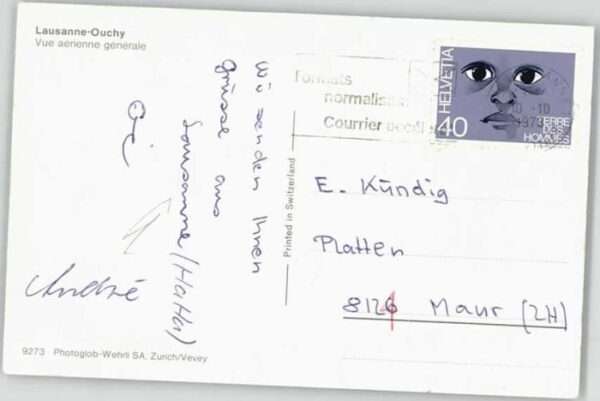 Lausanne-Ouchy
Vue aérienne générale
Wir senden Ihnen
Grüsse aus
Lausanne (HaHa)
André
9273 Photoglob-Wehrli SA, Zurich/Vevey
Printed in Switzerland
Formats
normalisés
Courrier
HELVETIA
40
TERRE
DES
HOMMES
10.-10
1973
E. Kündig
Platten
8126 Maur (ZH)